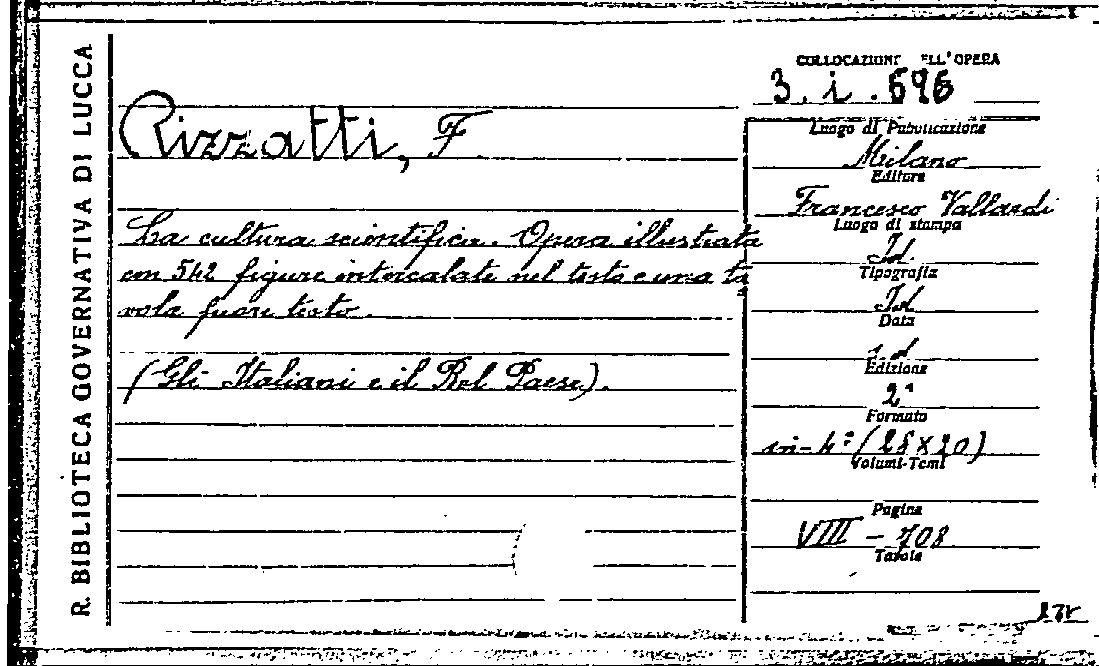 R. BIBLIOTECA GOVERNATIVA DI LUCCA
Rizzatti, F.
La cultura scientifica. Opera illustrata
con 542 figure intercalate nel testo e una ta
vola fuori testo.
(Gli Italiani e il Bel Paese).
COLLOCAZIONE ELL'OPERA
3. i. 696
Luogo di Pubblicazione
Milano
Editore
Francesco Vallardi
Luogo di stampa
Id.
Tipografia
Id
Data
s. d.
Edizione
2ª
Formato
in-4° (28×20)
Volumi-Tomi
Pagine
VIII - 708
Tavole